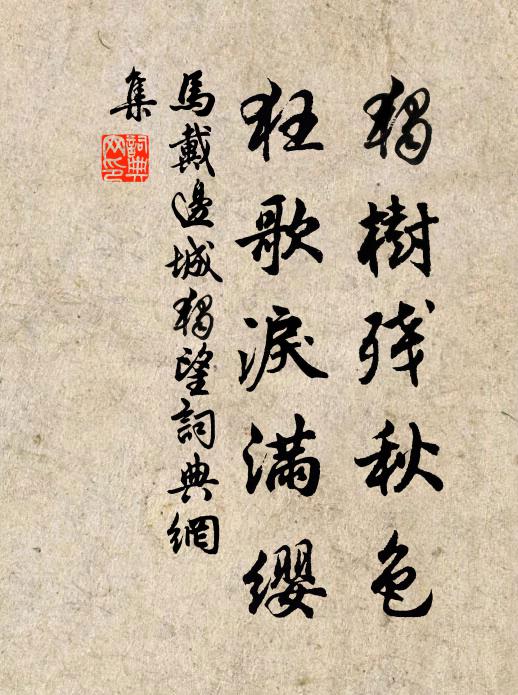 獨樹殘秋色
狂歌淚滿纓
馬戴邊城獨望詞典網
集
詞典
网印